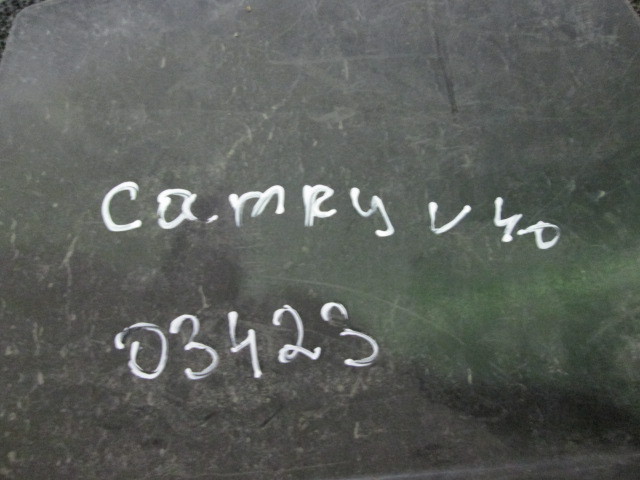 Camry v40
03423